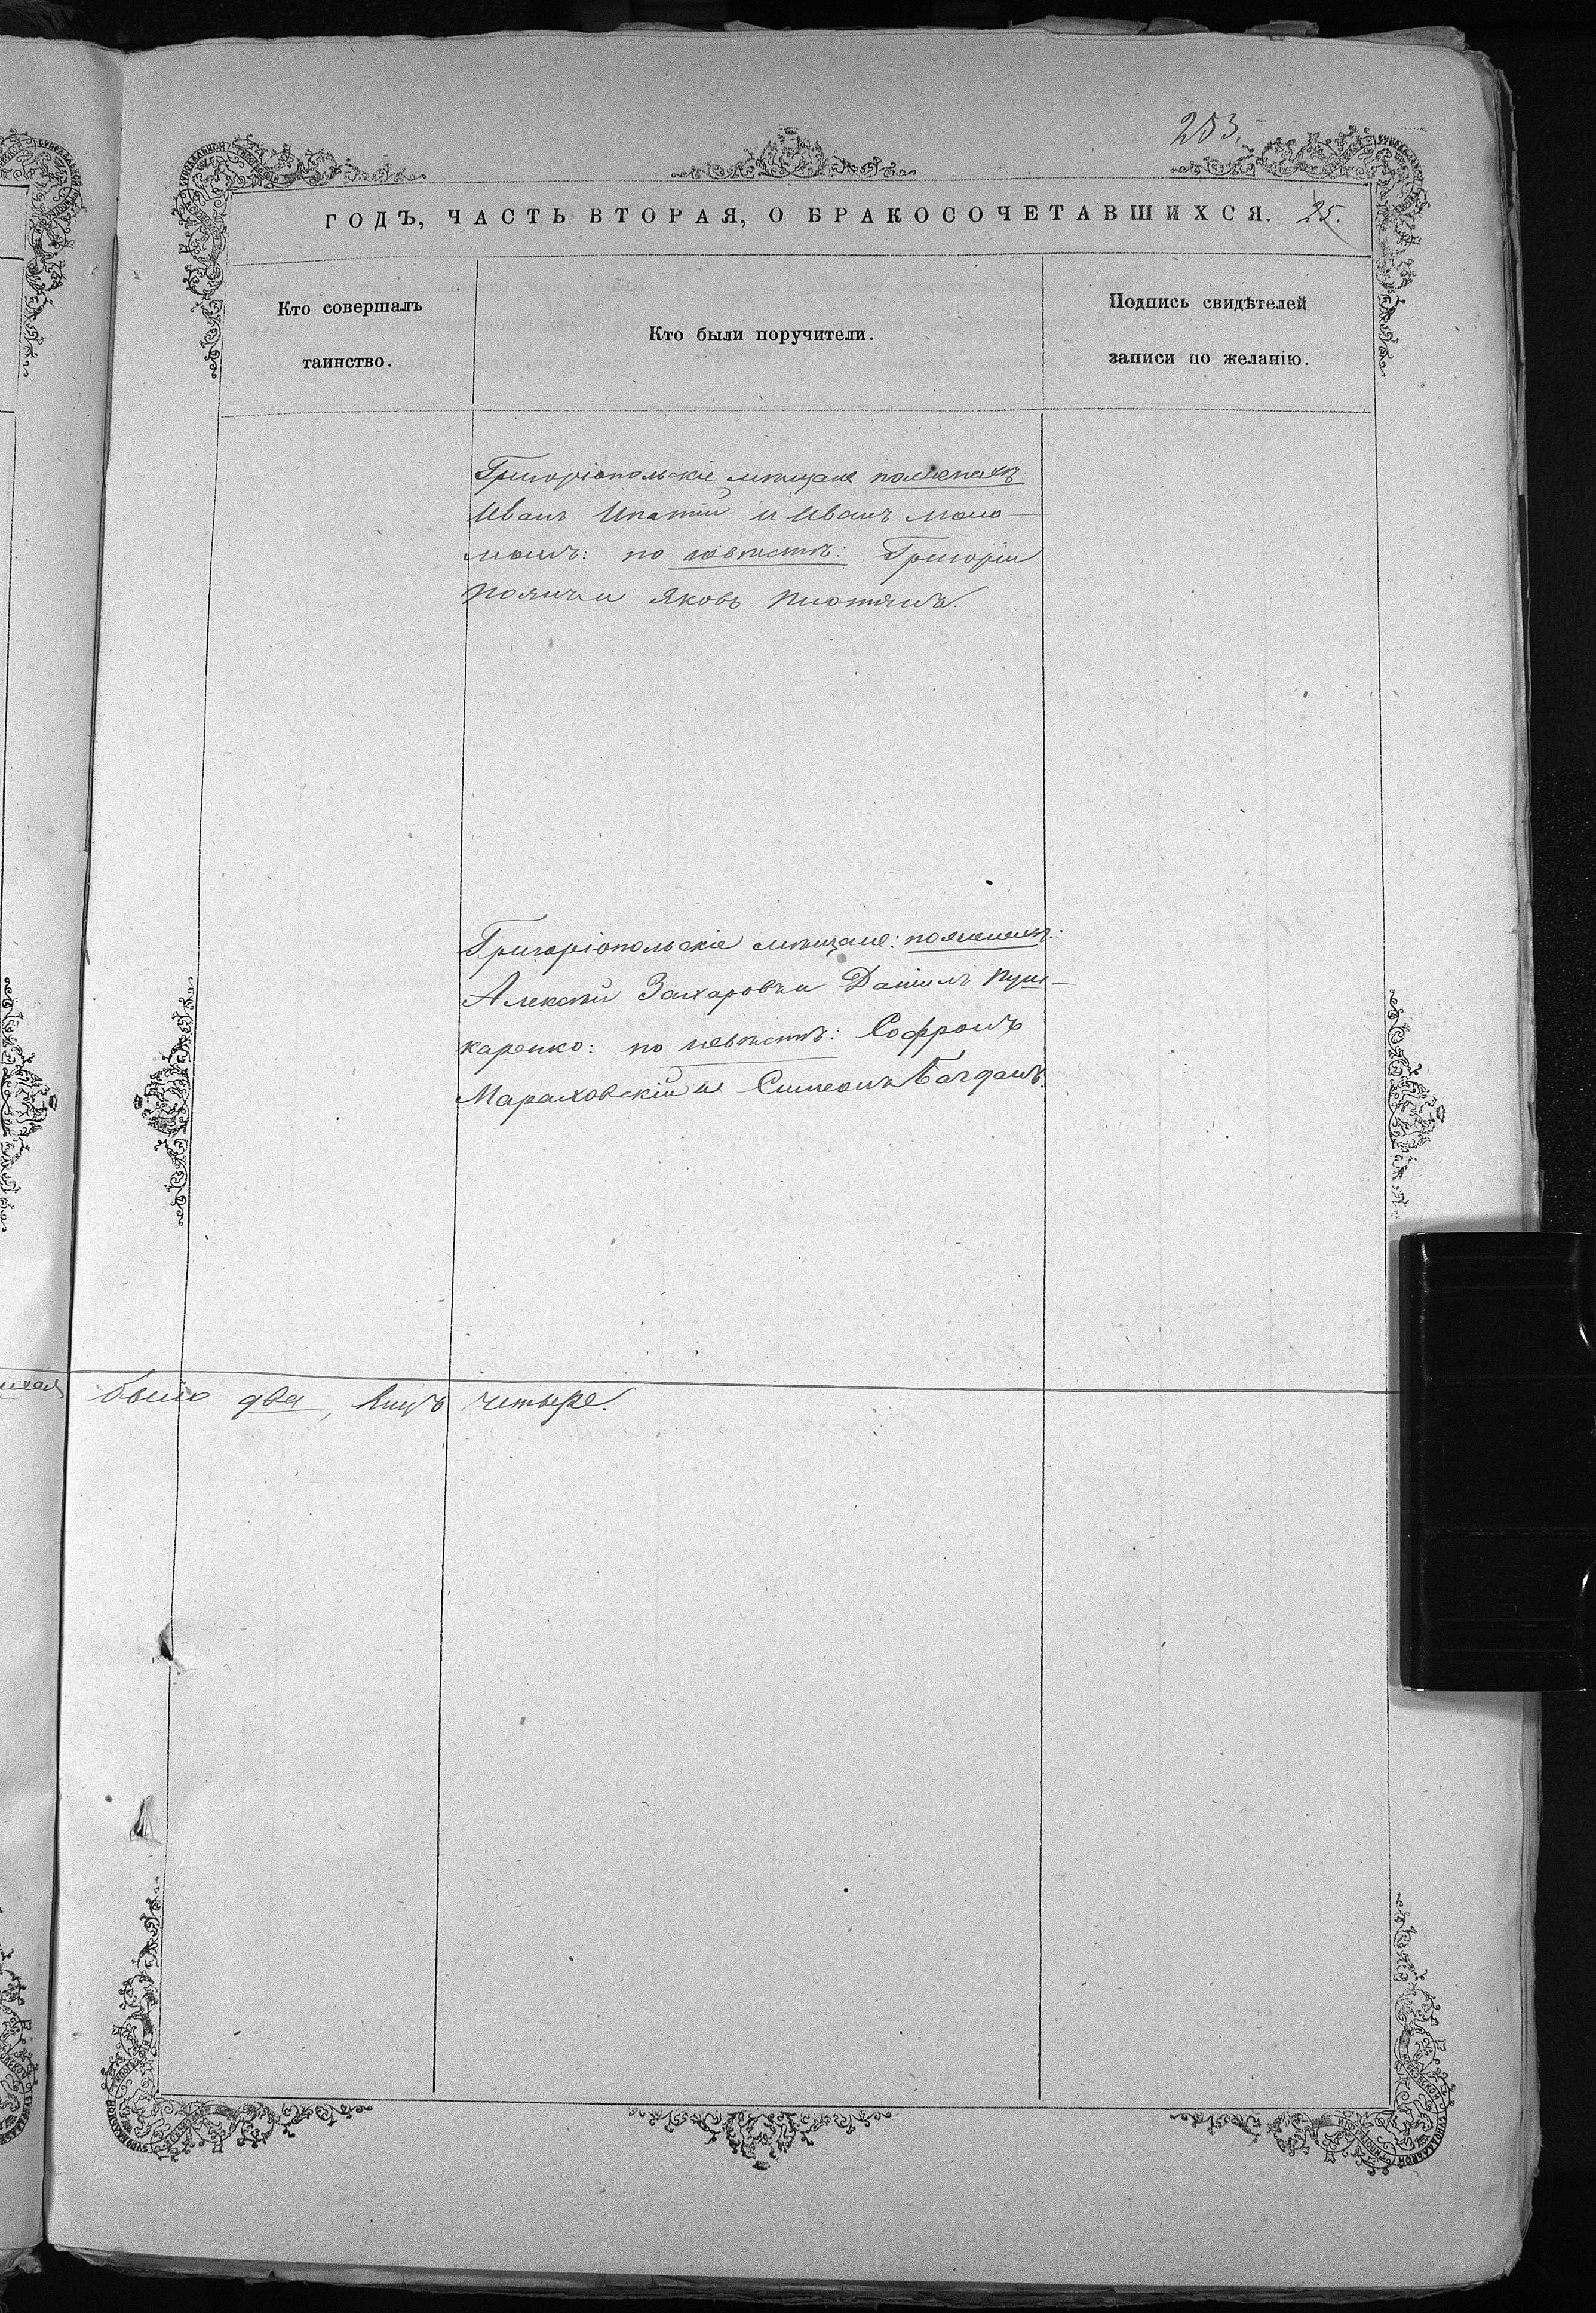 253.
ГОДЪ, ЧАСТЬ ВТОРАЯ, О БРАКОСОЧЕТАВШИХСЯ. 25.
Кто совершалъ
таинство.
Кто были поручители.
Подпись свидѣтелей
записи по желанію.
Григоріопольскіе мѣщане по женихѣ
Иванъ Ипатій и Иванъ Моло-
манъ: по невѣстѣ: Григорій
Поян и Яковъ Плотянъ.
Григоріопольскіе мѣщане: по женихѣ:
Алексѣй Захаровъ и Даніилъ Пуш-
каренко: по невѣстѣ: Софронъ
Мараховскій и Симеонъ Багданъ.
было два, лицъ четыре.